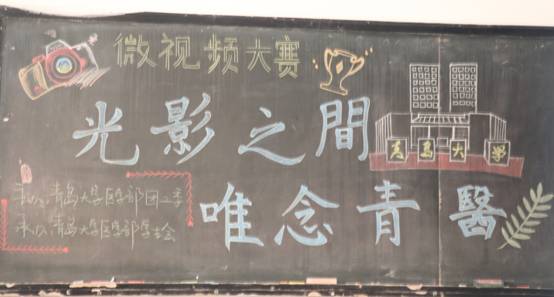 微视频大赛
光影之間
青岛大学
主办：青岛大学医学部团工委
承办：青岛大学医学部学生会
唯念青醫